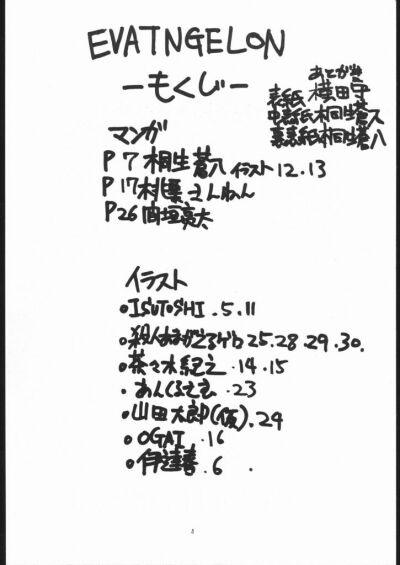 EVATNGELON
－もくじ－
あとがき
表紙 横田守
中表紙 桐生蒼八
裏表紙 桐生蒼八
マンガ
P7 桐生蒼八 イラスト12.13
P17 村雲さんねん
P26 西垣亮太
イラスト
•ISUTOSHI .5.11
•殺人おまがどるゲ 25.28.29.30.
•茶々木紀之 .14.15
•あんくるさむ .23
•山田太郎(仮).24
•OGAI .16
•伊達喜 .6